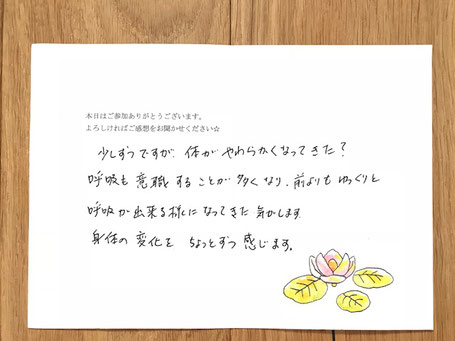 本日はご参加ありがとうございます。
よろしければご感想をお聞かせください☆
少しずつですが、体がやわらかくなってきた?
呼吸も意識することが多くなり、前よりもゆっくりと
呼吸が出来る様になってきた気がします
身体の変化を ちょっとずつ感じます。